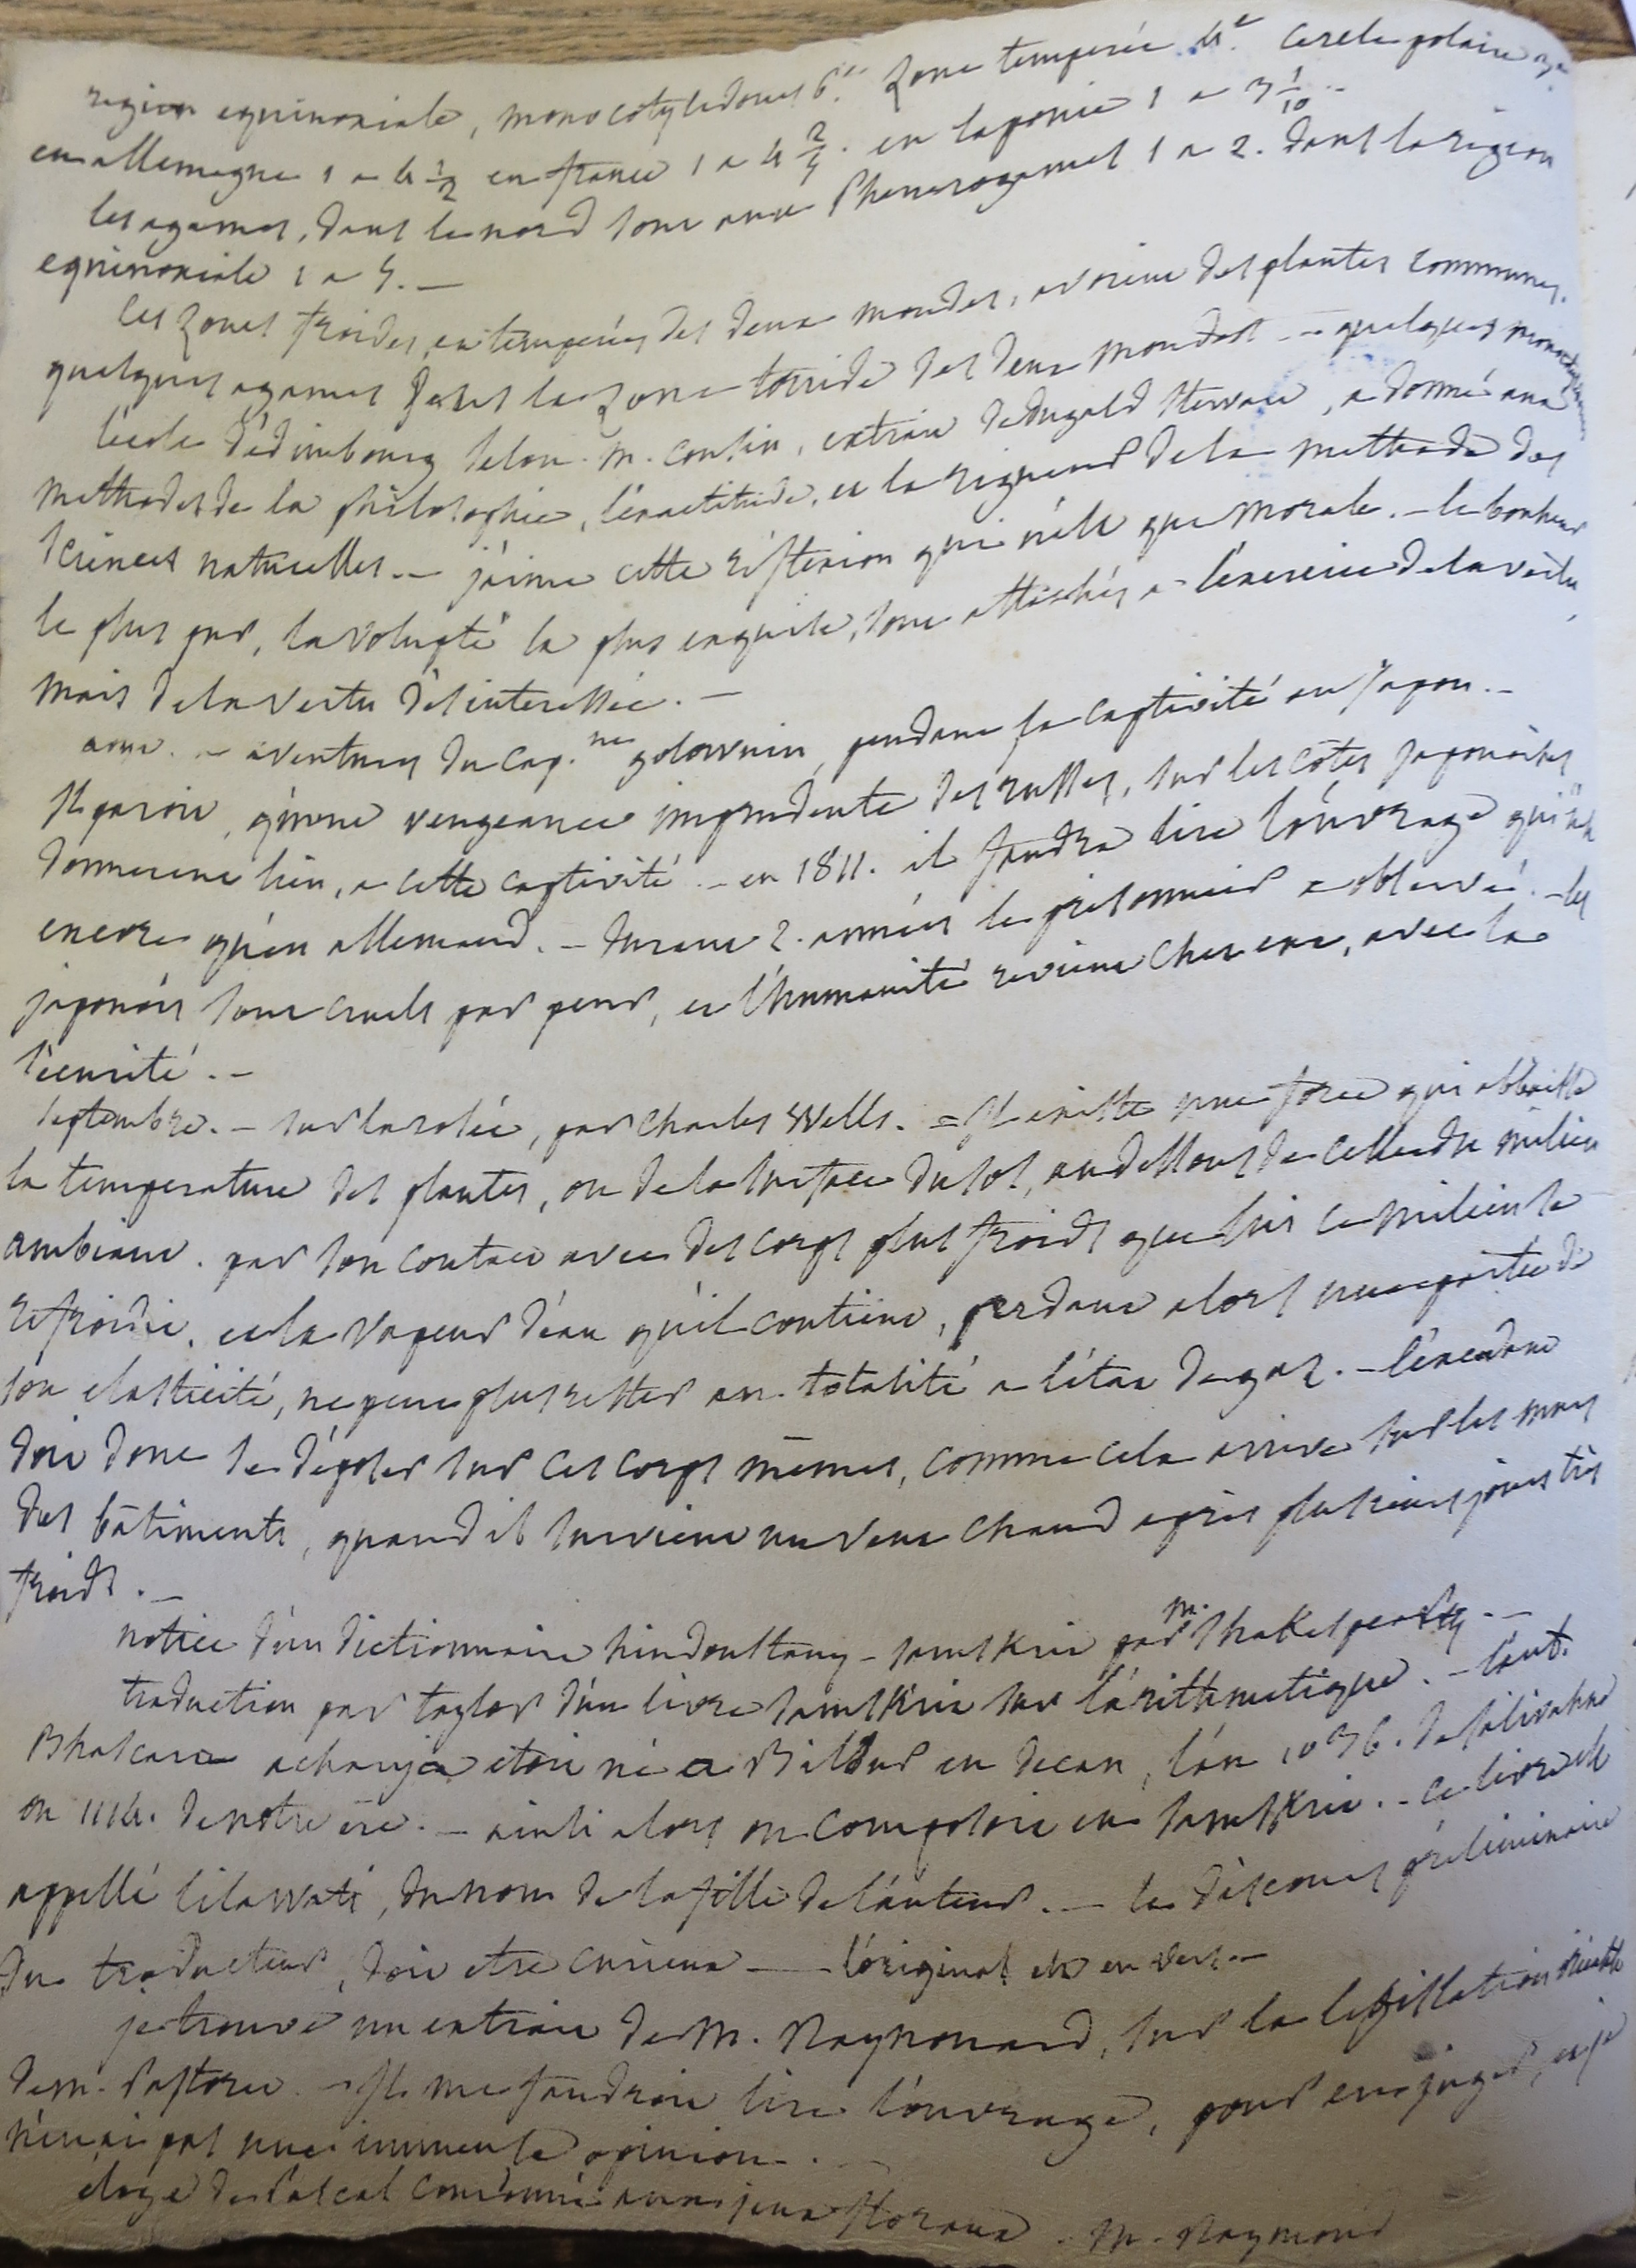 region equinoxiale, monocotyledones 6.e zone temperée 4.e cercle polaire
en allemagne 1 a 4 1/2 en france 1 a 4 2/3. en laponie 1 a 3 1/10.
les agames, dans le nord sont aux Phenerogames 1 a 2. dans la region
equinoxiale 1 a 5. —
les zones froides, et temperées des deux mondes, avoient des plantes communes,
quelques agames dans la zone torride des deux mondes — quelques monocotyledones
l'ecole d'edimbourg selon M. Cousin, extrait de dugald Stewart, a donné aux
methodes de la philosophie, l'exactitude, et la rigueur de la methode des
sciences naturelles. — j'aime cette reflexion qui n'est que morale. — le bonheur
le plus pur, la volupté la plus exquise, sont attachés a l'exercice de la vertu,
mais de la vertu desinteressée. —
aout. — aventures du cap.ne golownin, pendant sa captivité au Japon. —
Il paroit, qu'une vengeance imprudente des russes, sur les côtes japonoises
donnerent lieu, a cette captivité. — en 1811. il faudra lire l'ouvrage qui n'est
encore qu'en allemand. — durant 2. années le prisonnier a observé. — les
japonois sont cruels par peur, et l'humanité revient chez eux, avec la
sécurité. —
septembre. — sur la rosée, par Charles Wells. = Il existe une force qui abbaisse
la temperature des plantes, ou de la surface du sol, au dessous de celle du milieu
ambiant. par son contact avec des corps plus froids que lui ce milieu se
refroidit, et la vapeur d'eau qu'il contient, perdant alors une partie de
son elasticité, ne peut plus rester en totalité a l'état de gaz. — l'excedant
doit donc se déposer sur ces corps mêmes, comme cela arrive sur les murs
des bâtiments, quand il survient un vent chaud après plusieurs jours très
froids. —
notice d'un dictionnaire hindoustany - samskrit par M. Shakespear —
traduction par taylor d'un livre samskrit sur l'arithmetique. — l'aut.
Bhascara acharya etoit né a Biddur en Decan, l'an 1036. de salivahna
ou 1114. de notre ere. — ainsi alors on composoit en samskrit. — ce livre est
appellé lilawati, du nom de la fille de l'auteur. — le discours preliminaire
du traducteur, doit etre curieux — l'original est en vers —
je trouve un extrait de M. Raynouard, sur la legislation
de M. Pastoret. — Il me faudroit lire l'ouvrage, pour en juger, et je
n'en ai pas une immense opinion. —
eloge de Pascal couronné aux jeux floraux. M. Raymond